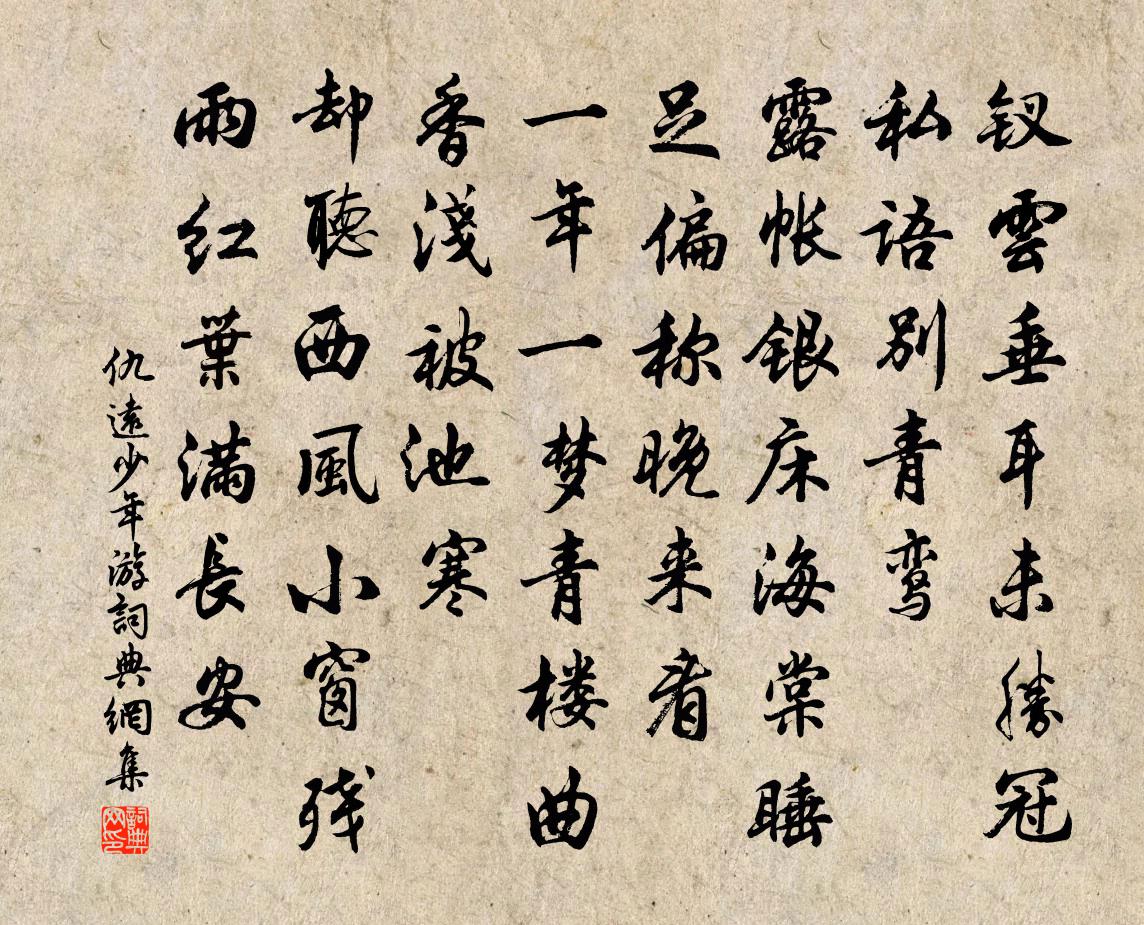 钗雲垂耳未勝冠
私语别青鸾
露帐银床海棠睡
足偏称晚来看
一年一梦青楼曲
香淺被池寒
却聽西風小窗残
雨红葉满長安
仇遠少年游詞典網集
詞典网印